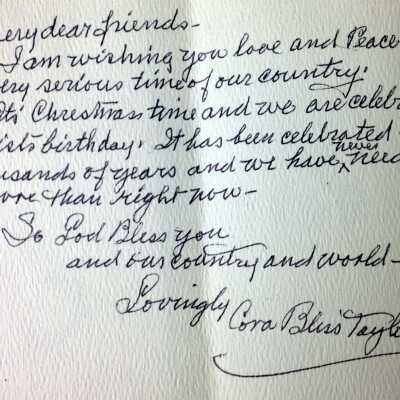 ery dear friends-
I am wishing you love and Peace
ery serious time of our country.
It's Christmas time and we are celebr
ist's birthday. It has been celebrated
usands of years and we have never need
ore than right now-
So God Bless you
and our country and world-
Lovingly
Cora Bliss Tayl